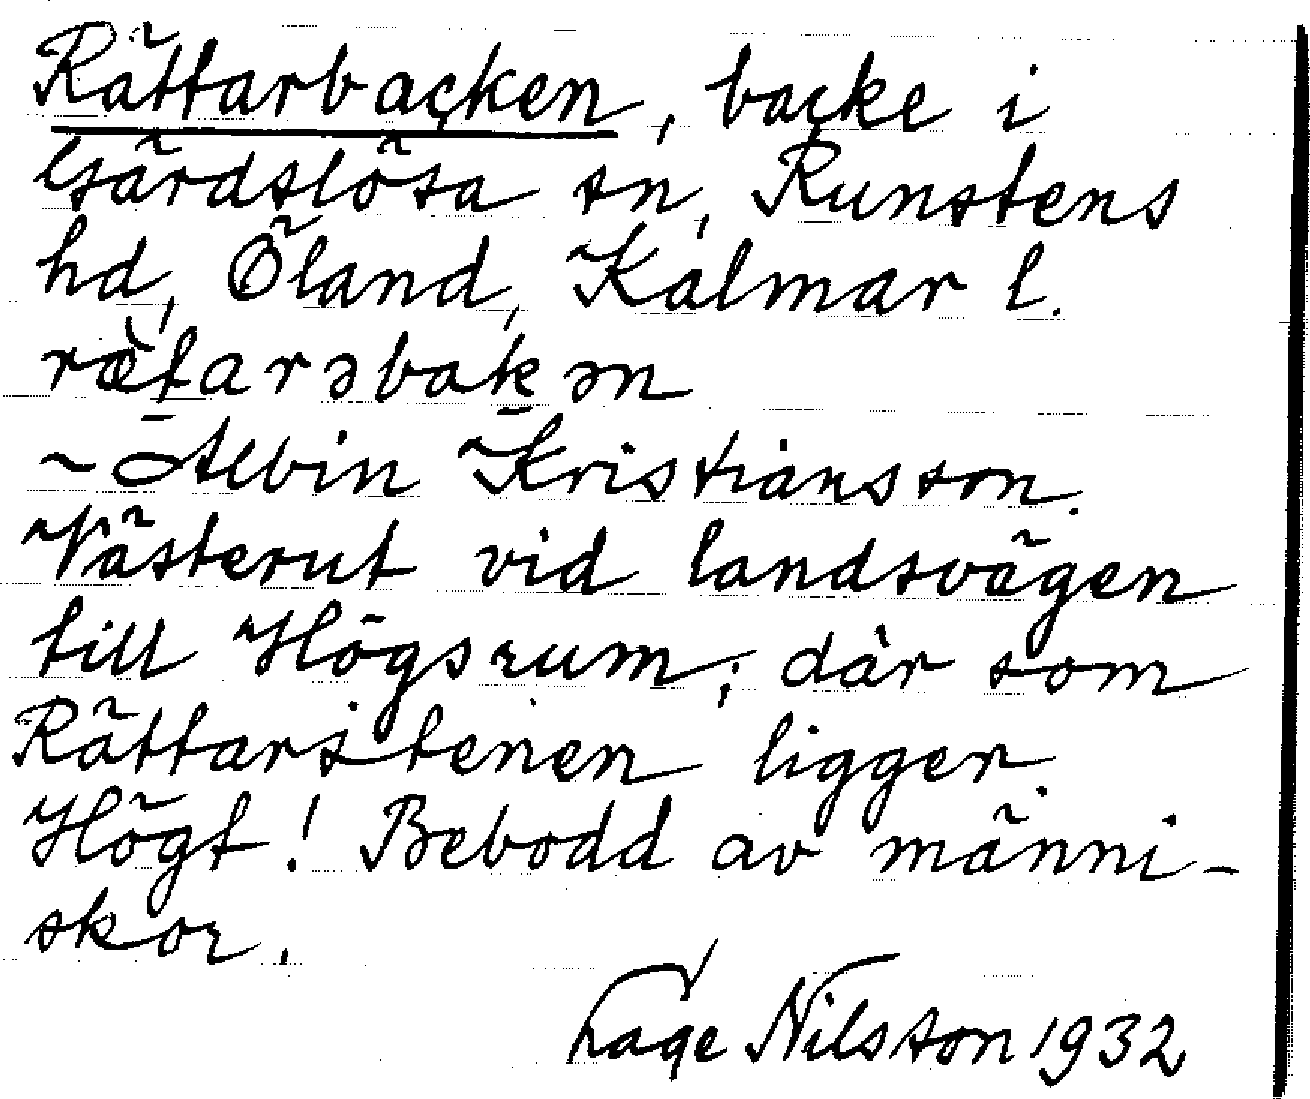 Rättarbacken, backe i
Gärdslösa sn, Runstens
hd, Öland, Kalmar l.
ræ̀tarəbakən
~ Albin Kristiansson.
Västerut vid landsvägen
till Högsrum, där som
Rättaristenen ligger.
Högt! Bebodd av männi-
skor.
Tage Nilsson 1932